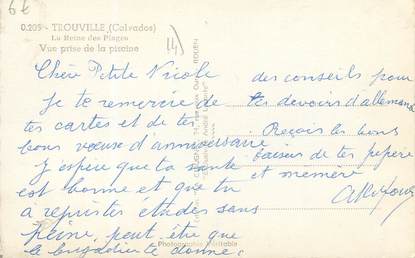 6€
0.205 - TROUVILLE (Calvados)
La Reine des Plages
Vue prise de la piscine
14
Chère Petite Nicole
Je te remercie de
tes cartes et de tes
bons voeux d'anniversaire
J'espère que ta santé
est bonne et que tu
a repris tes études sans
peine, peut être que
le brigadier te donne
des conseils pour
tes devoirs d'allemand
Reçois les bons
baisers de tes pépère
et mémère
Photographie Véritable
ROUEN